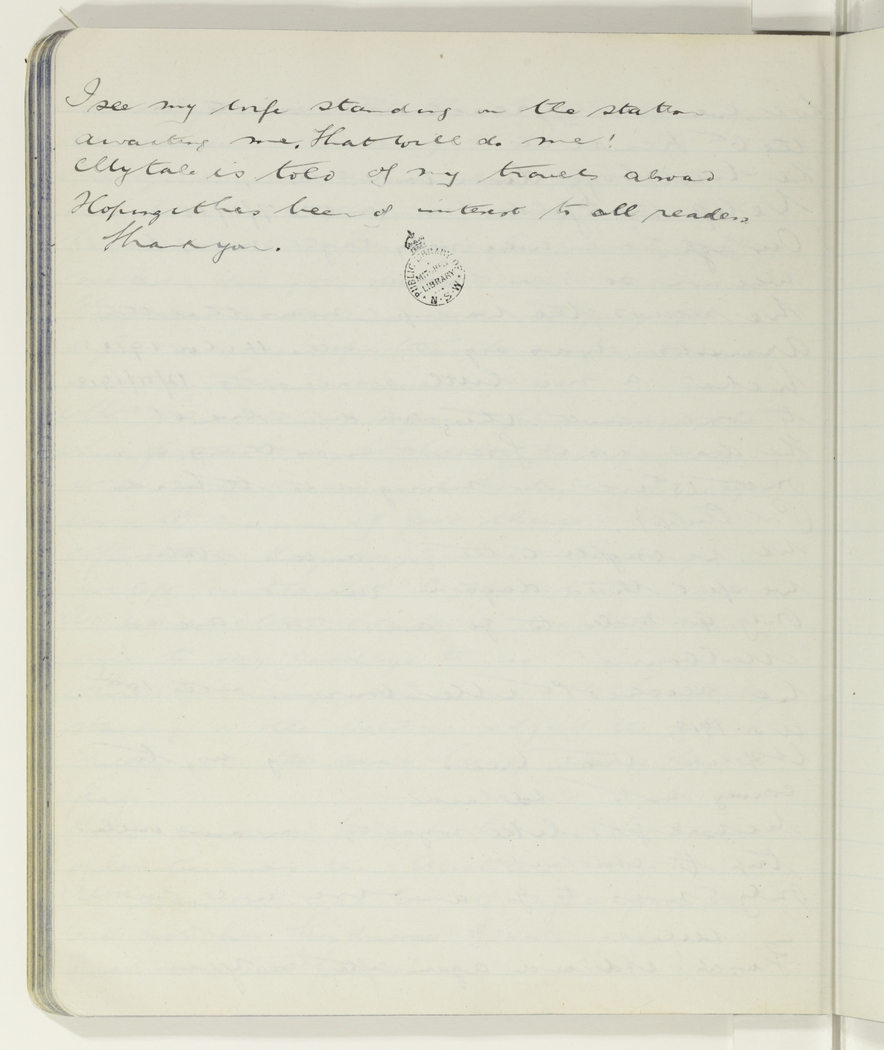 I see my wife standing on the station
awaiting me. That will do me!
My tale is told of my travels abroad
Hoping it has been of interest to all readers
Thank you.
PUBLIC LIBRARY OF N.S.W.
MITCHELL
LIBRARY